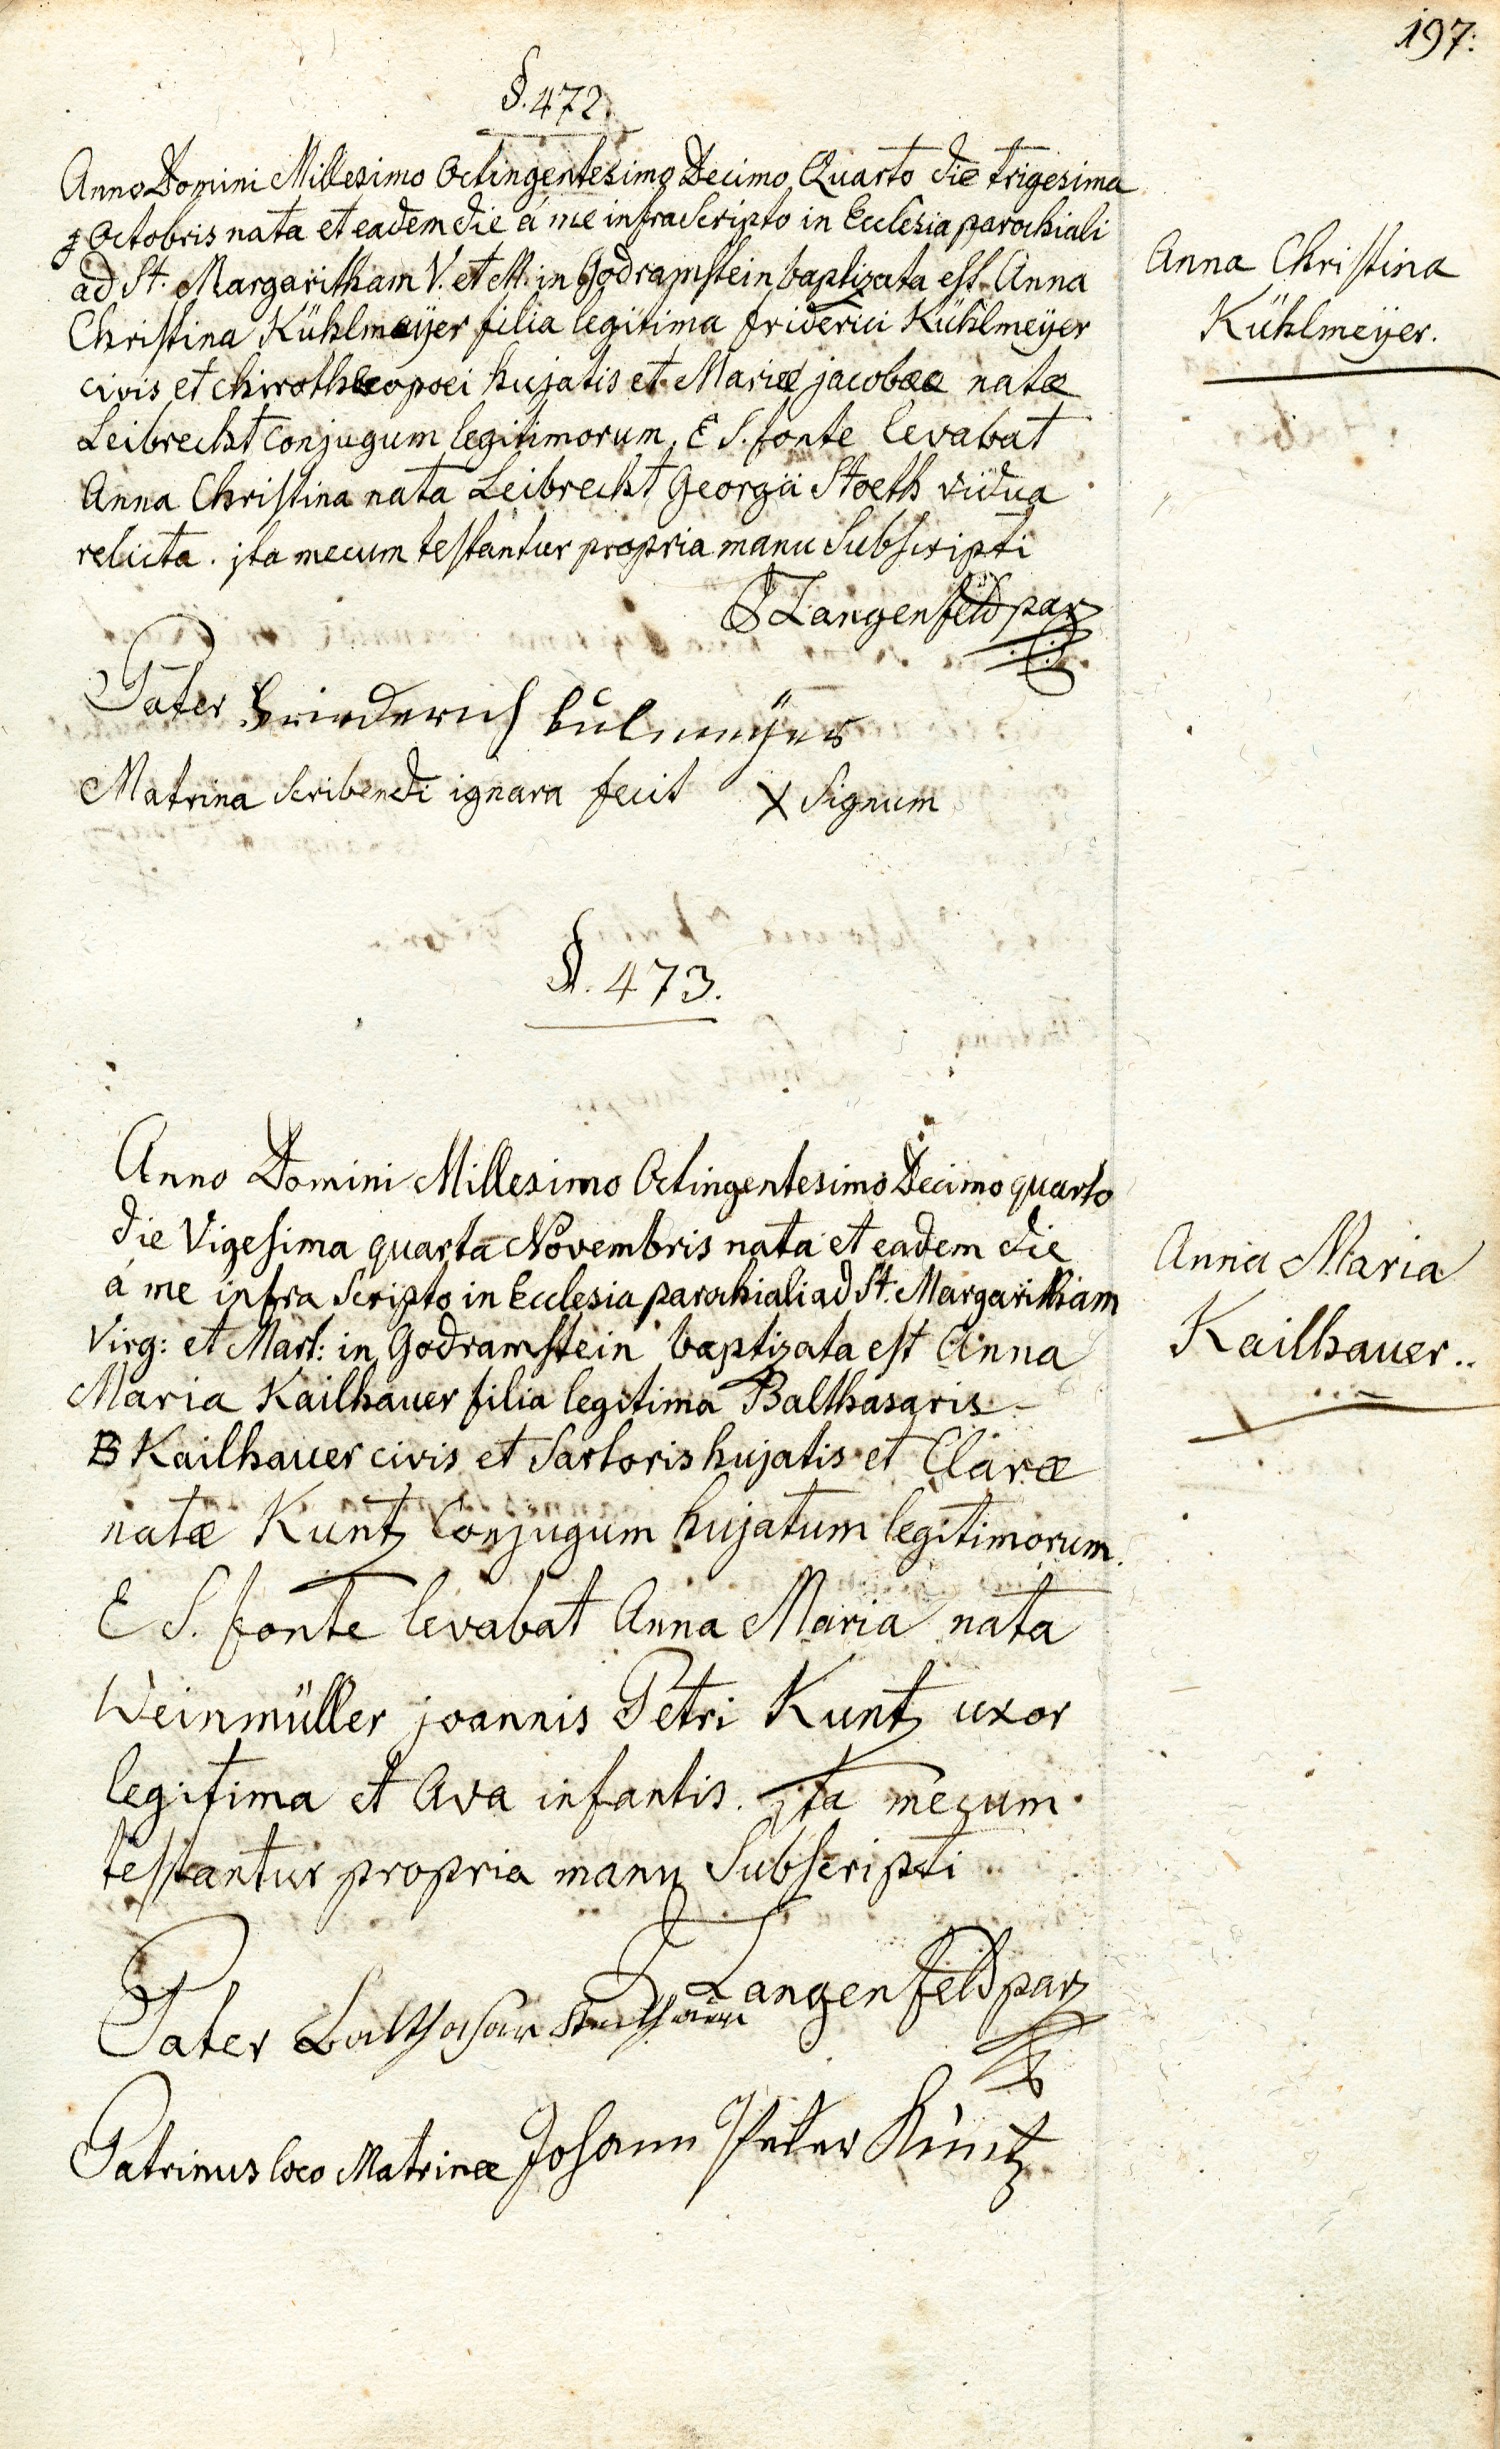 197:
§. 472.
Anno Domini Millesimo Octingentesimo Decimo Quarto die trigesima
Octobris nata et eadem die á me infra Scripto in Ecclesia parochiali
ad St. Margaritham V. et M. in Godramstein baptizata est Anna
Christina Kühlmeijer filia legitima friderici Kühlmeijer
civis et chirothecopoei hujatis et Mariæ jacobææ natæ
Leibrecht Conjugum legitimorum. E S. fonte levabat
Anna Christina nata Leibrecht Georgii Stoeth vidua
relicta. jta mecum testantur propria manu Subscripti
Anna Christina
Kühlmeijer.
Langenfeld par
Pater Friederich Kulmeÿer
Matrina Scribendi ignara fecit X Signum
§. 473.
Anno Domini Millesimo Octingentesimo Decimo quarto
die Vigesima quarta Novembris nata et eadem die
á me infra Scripto in Ecclesia parochiali ad St. Margaritham
Virg: et Mart: in Godramstein baptizata est Anna
Maria Kailhauer filia legitima Balthasaris
B Kailhauer civis et Sartoris hujatis et Claræ
natæ Kuntz Conjugum hujatum legitimorum.
E S. fonte levabat Anna Maria nata
Weinmüller joannis Petri Kuntz uxor
legitima et Ava infantis. jta mecum
testantur propria manu Subscripti
Anna Maria
Kailhauer..
Langenfeld par
Pater Balthasar
Patrinus loco Matrinæ Johann Peter Kuntz